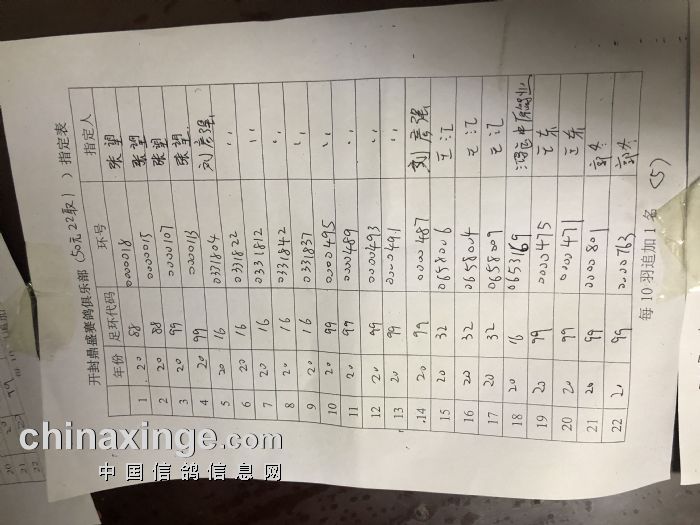 开封鼎盛赛鸽俱乐部(50元22取1)指定表
年份 足环代码 环号 指定人
1 20 88 0000018 张望
2 20 88 0000015 张望
3 20 99 0000107 张望
4 20 99 0000113 张望
5 20 16 0331804 刘彦强
6 20 16 0331822 〃
7 20 16 0331812 〃
8 20 16 0331842 〃
9 20 16 0331837 〃
10 20 99 0000495 〃
11 20 99 0000489 〃
12 20 99 0000493 〃
13 20 99 0000491 〃
14 20 99 0000487 刘彦强
15 20 32 0658006 王江
16 20 32 0658004 王江
17 20 32 0658009 王江
18 20 16 0653169 中原鸽业
19 20 99 0000475 王东
20 20 99 0000471 王东
21 20 99 0000801
22 20 99 0000763
每10羽追加1名 (5)
chinaxinge.com
中国信鸽信息网
20
21
22